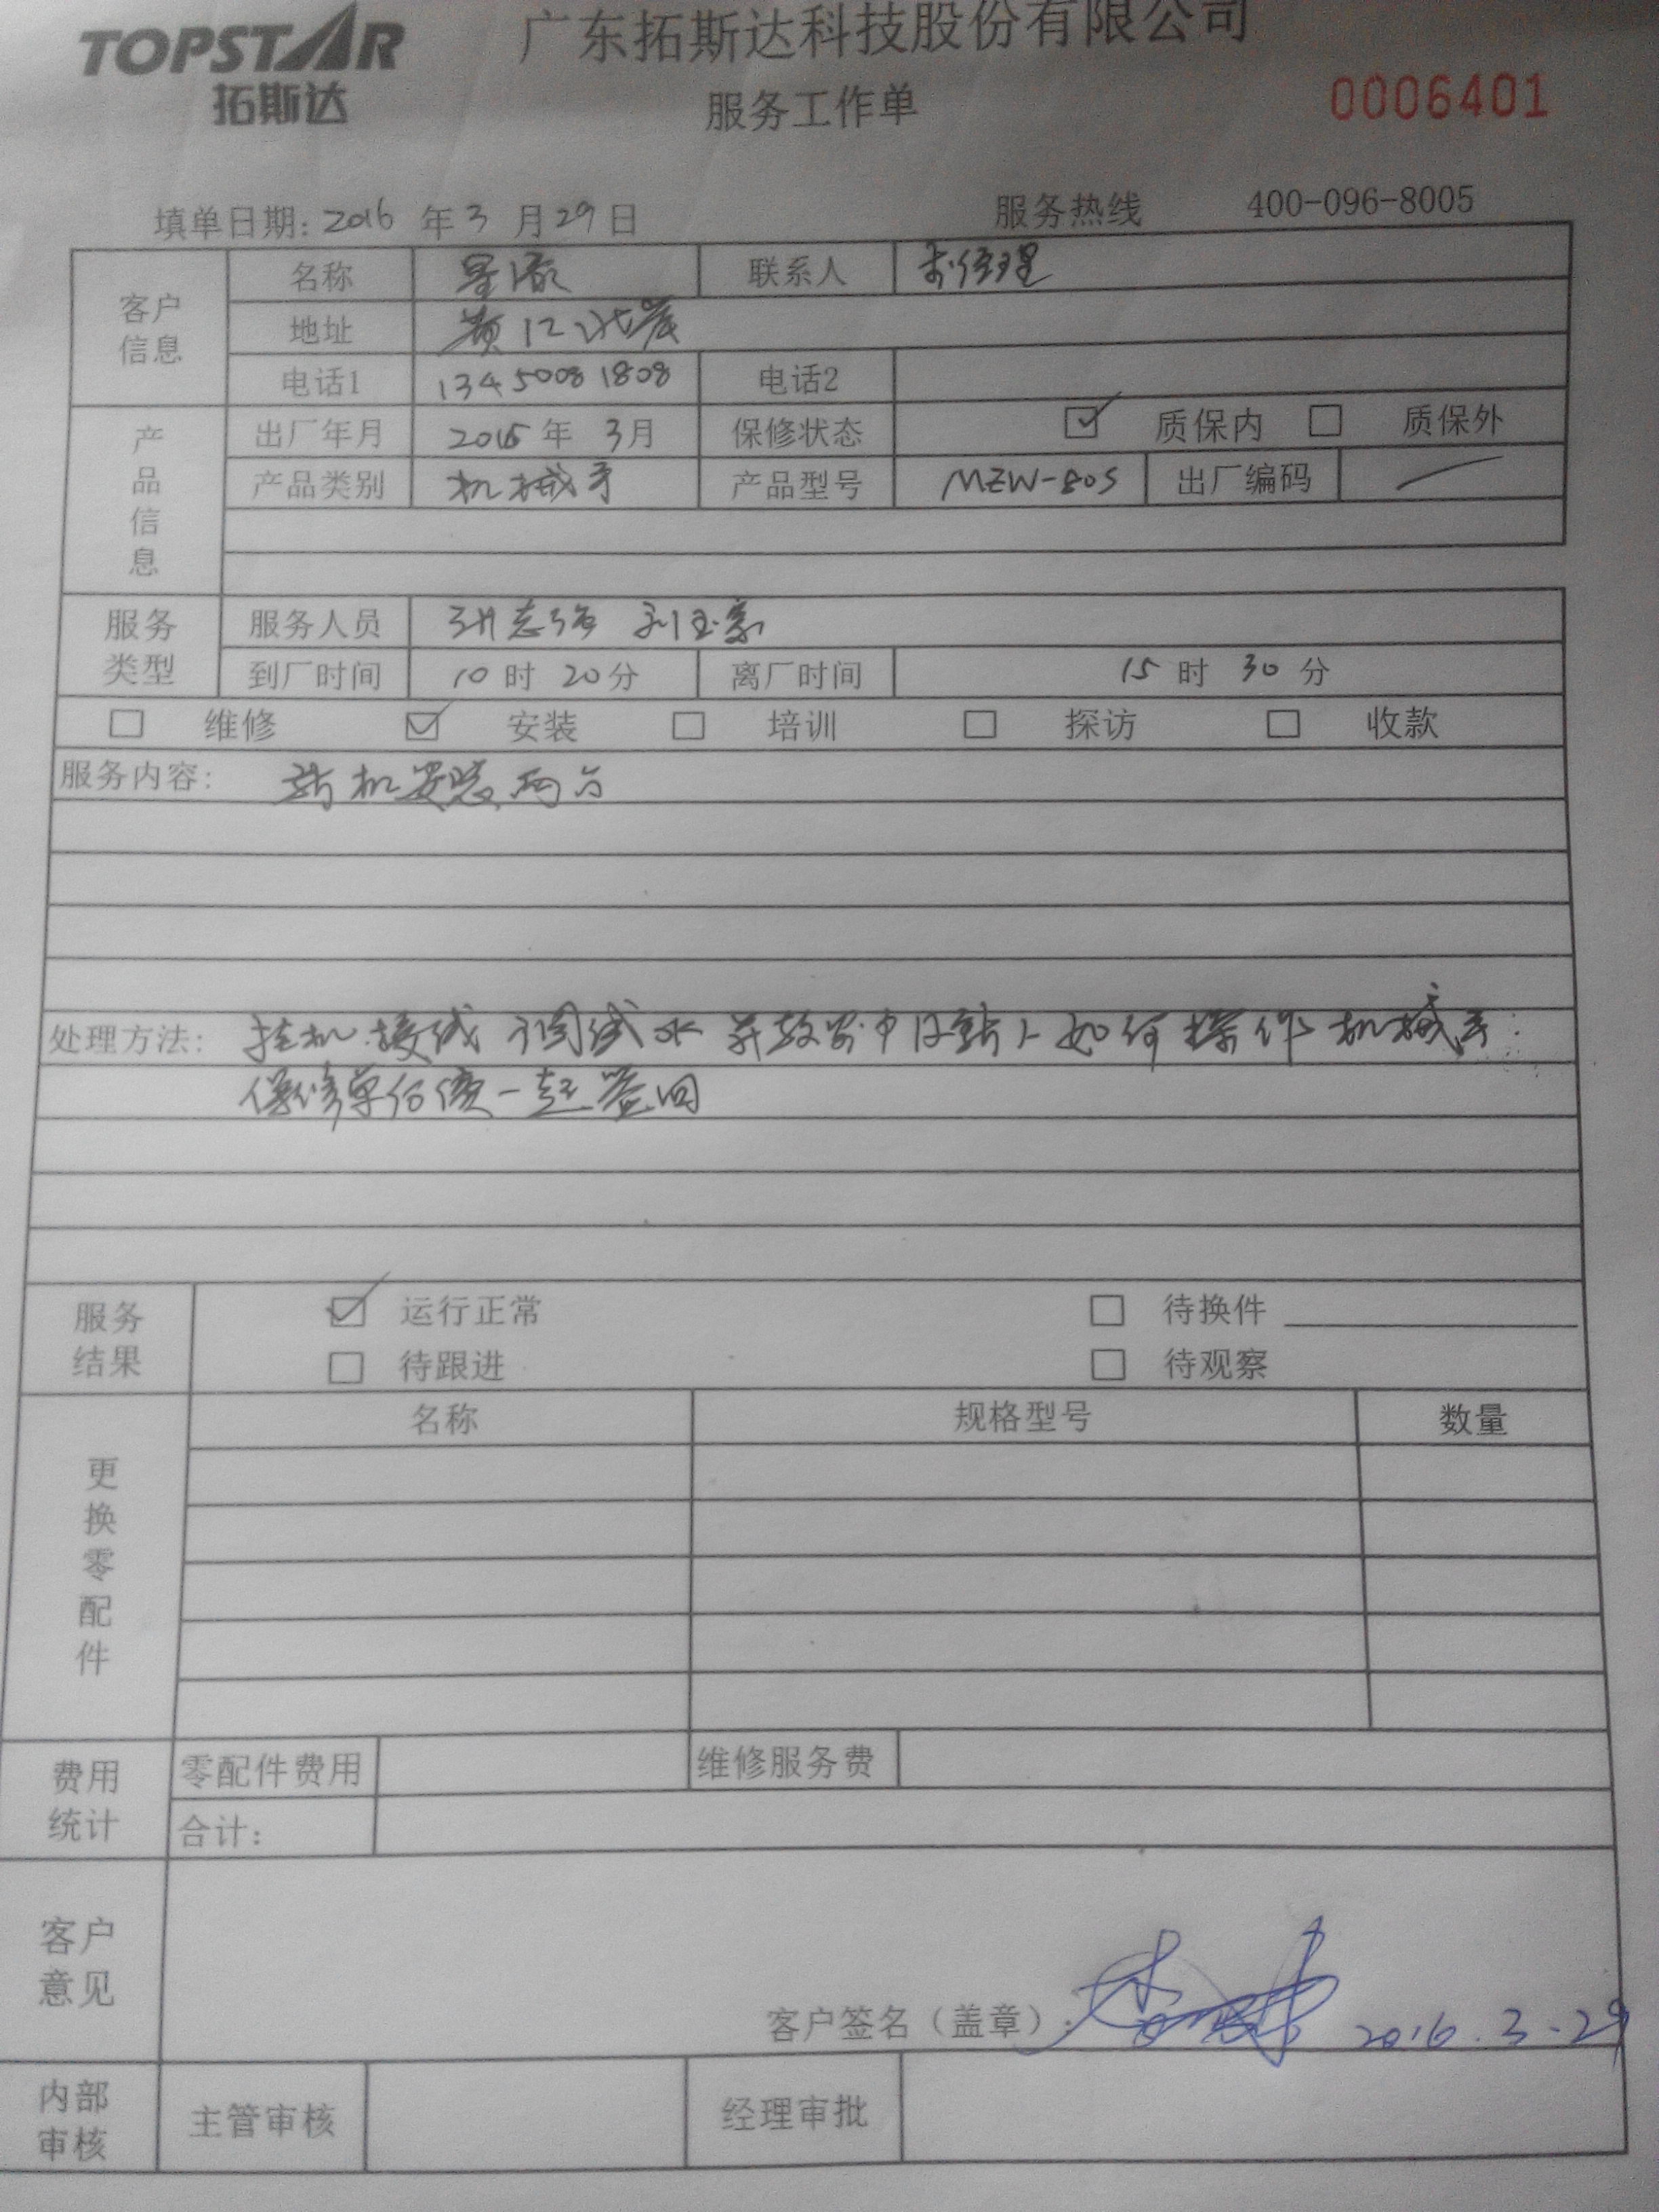 TOPSTAR
拓斯达
广东拓斯达科技股份有限公司
服务工作单
0006401
填单日期: 2016 年 3 月 29 日
服务热线 400-096-8005
客户信息
名称 星 联系人 李经理
地址 黄江
电话1 13450081808 电话2
产品信息
出厂年月 2016 年 3月 保修状态 质保内 质保外
产品类别 机械手 产品型号 MZW-80S 出厂编码
服务类型
服务人员 张志强 刘玉
到厂时间 10 时 20 分 离厂时间 15 时 30 分
维修 安装 培训 探访 收款
服务内容: 新机安装两台
处理方法: 挂机 接线 调试 并教 如何操作机械手
保修单 一起签回
服务结果
运行正常 待换件
待跟进 待观察
更换零配件
名称 规格型号 数量
费用统计
零配件费用 维修服务费
合计:
客户意见
客户签名（盖章）: 2016.3.29
内部审核
主管审核 经理审批